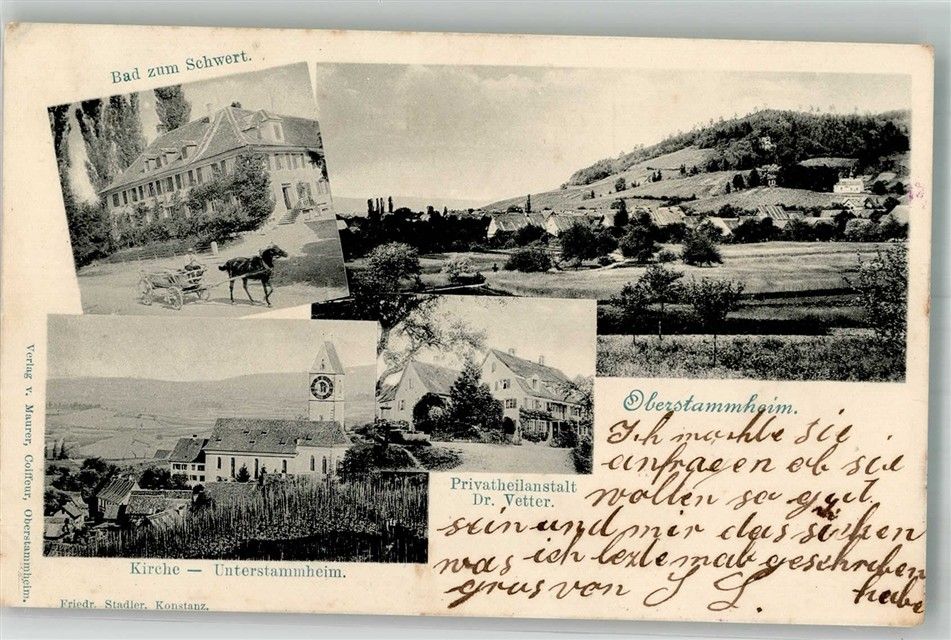 Bad zum Schwert.
Oberstammheim.
Privatheilanstalt
Dr. Vetter.
Kirche — Unterstammheim.
Verlag v. Maurer, Coiffeur, Oberstammheim.
Friedr. Stadler, Konstanz.
Ich möchte sie
anfragen ob sie
wollen so gut
sein und mir das
was ich leztemal geschrieben
habe
grus von S L.